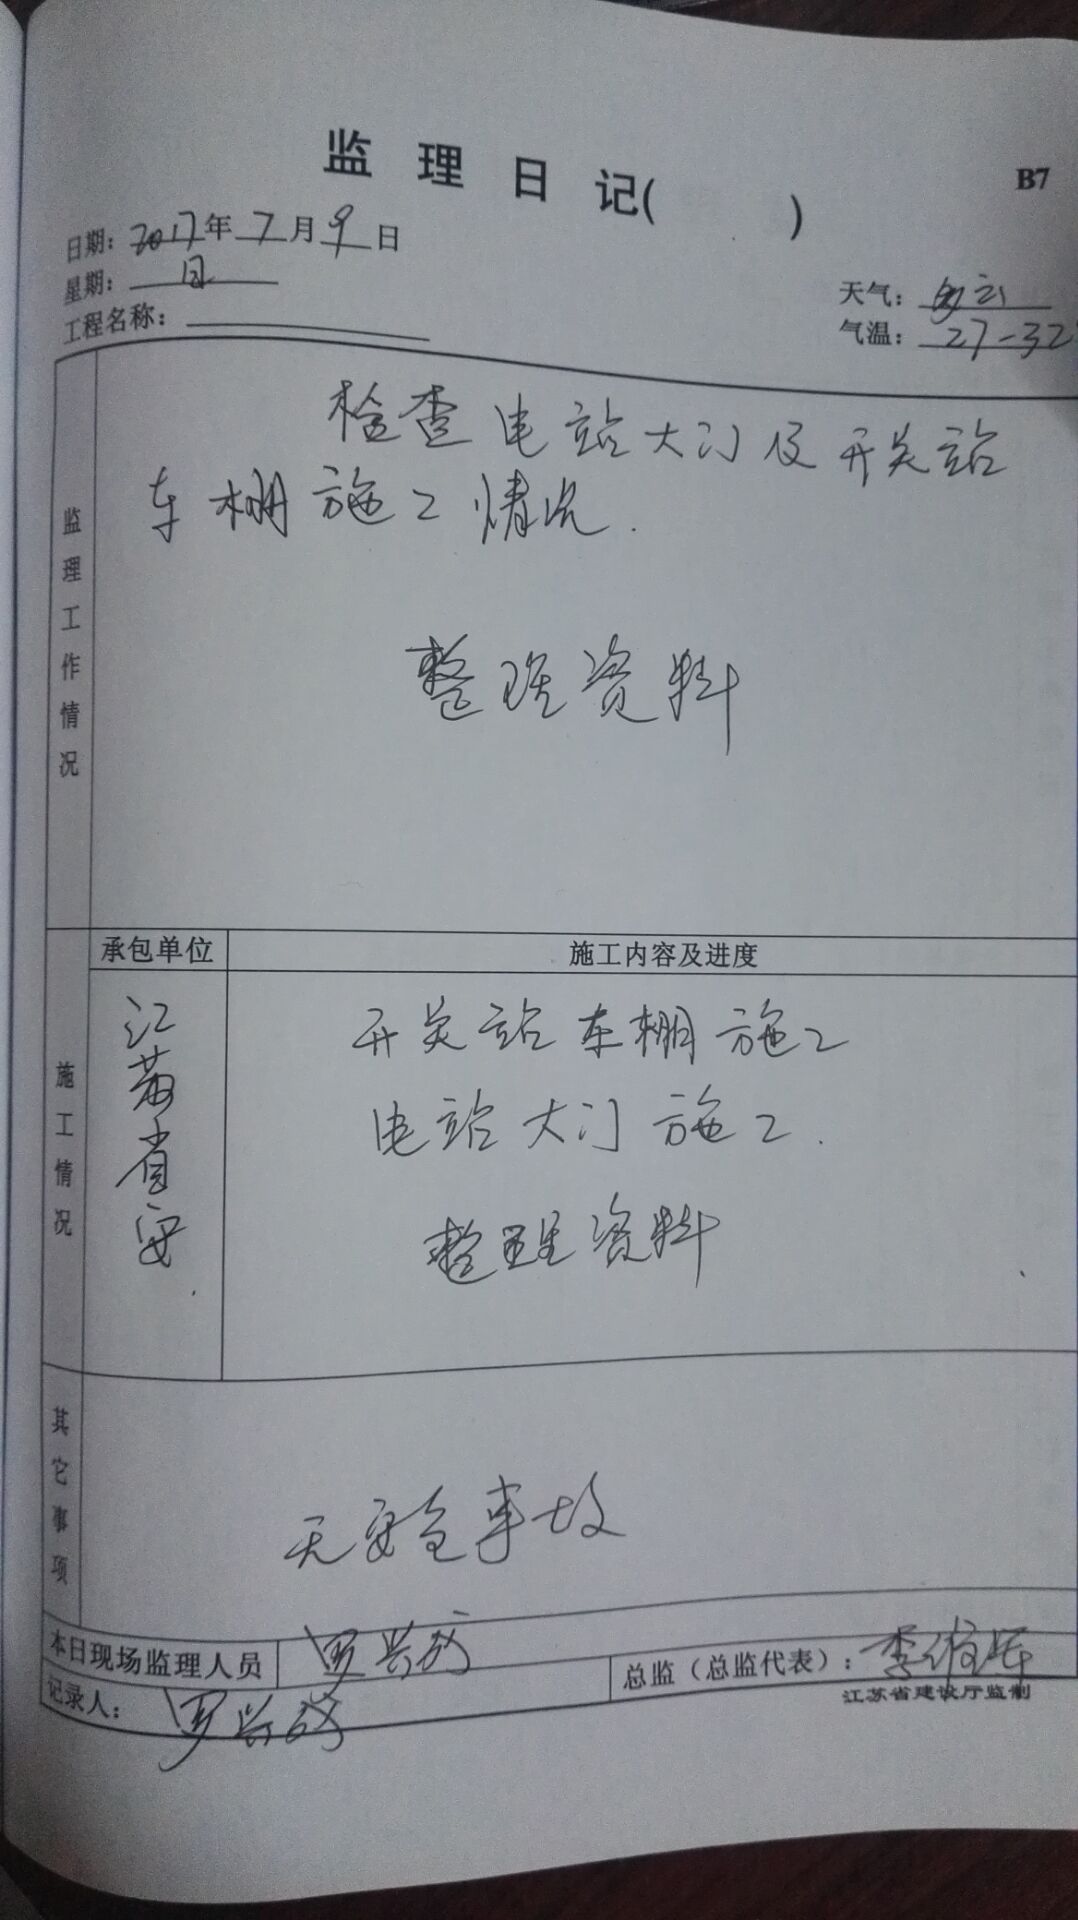 监理日记( )
B7
日期：2017年7月9日
星期：日
天气：多云
工程名称：
气温：27-32
监理工作情况
检查电站大门及开关站
车棚施工情况.
整理资料
承包单位
施工内容及进度
施工情况
江苏省安
开关站车棚施工
电站大门施工.
整理资料
其它事项
无安全事故
本日现场监理人员
罗兴成
总监（总监代表）：李
记录人：罗兴成
江苏省建设厅监制